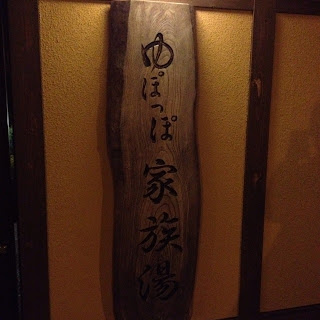 ゆぽっぽ家族湯